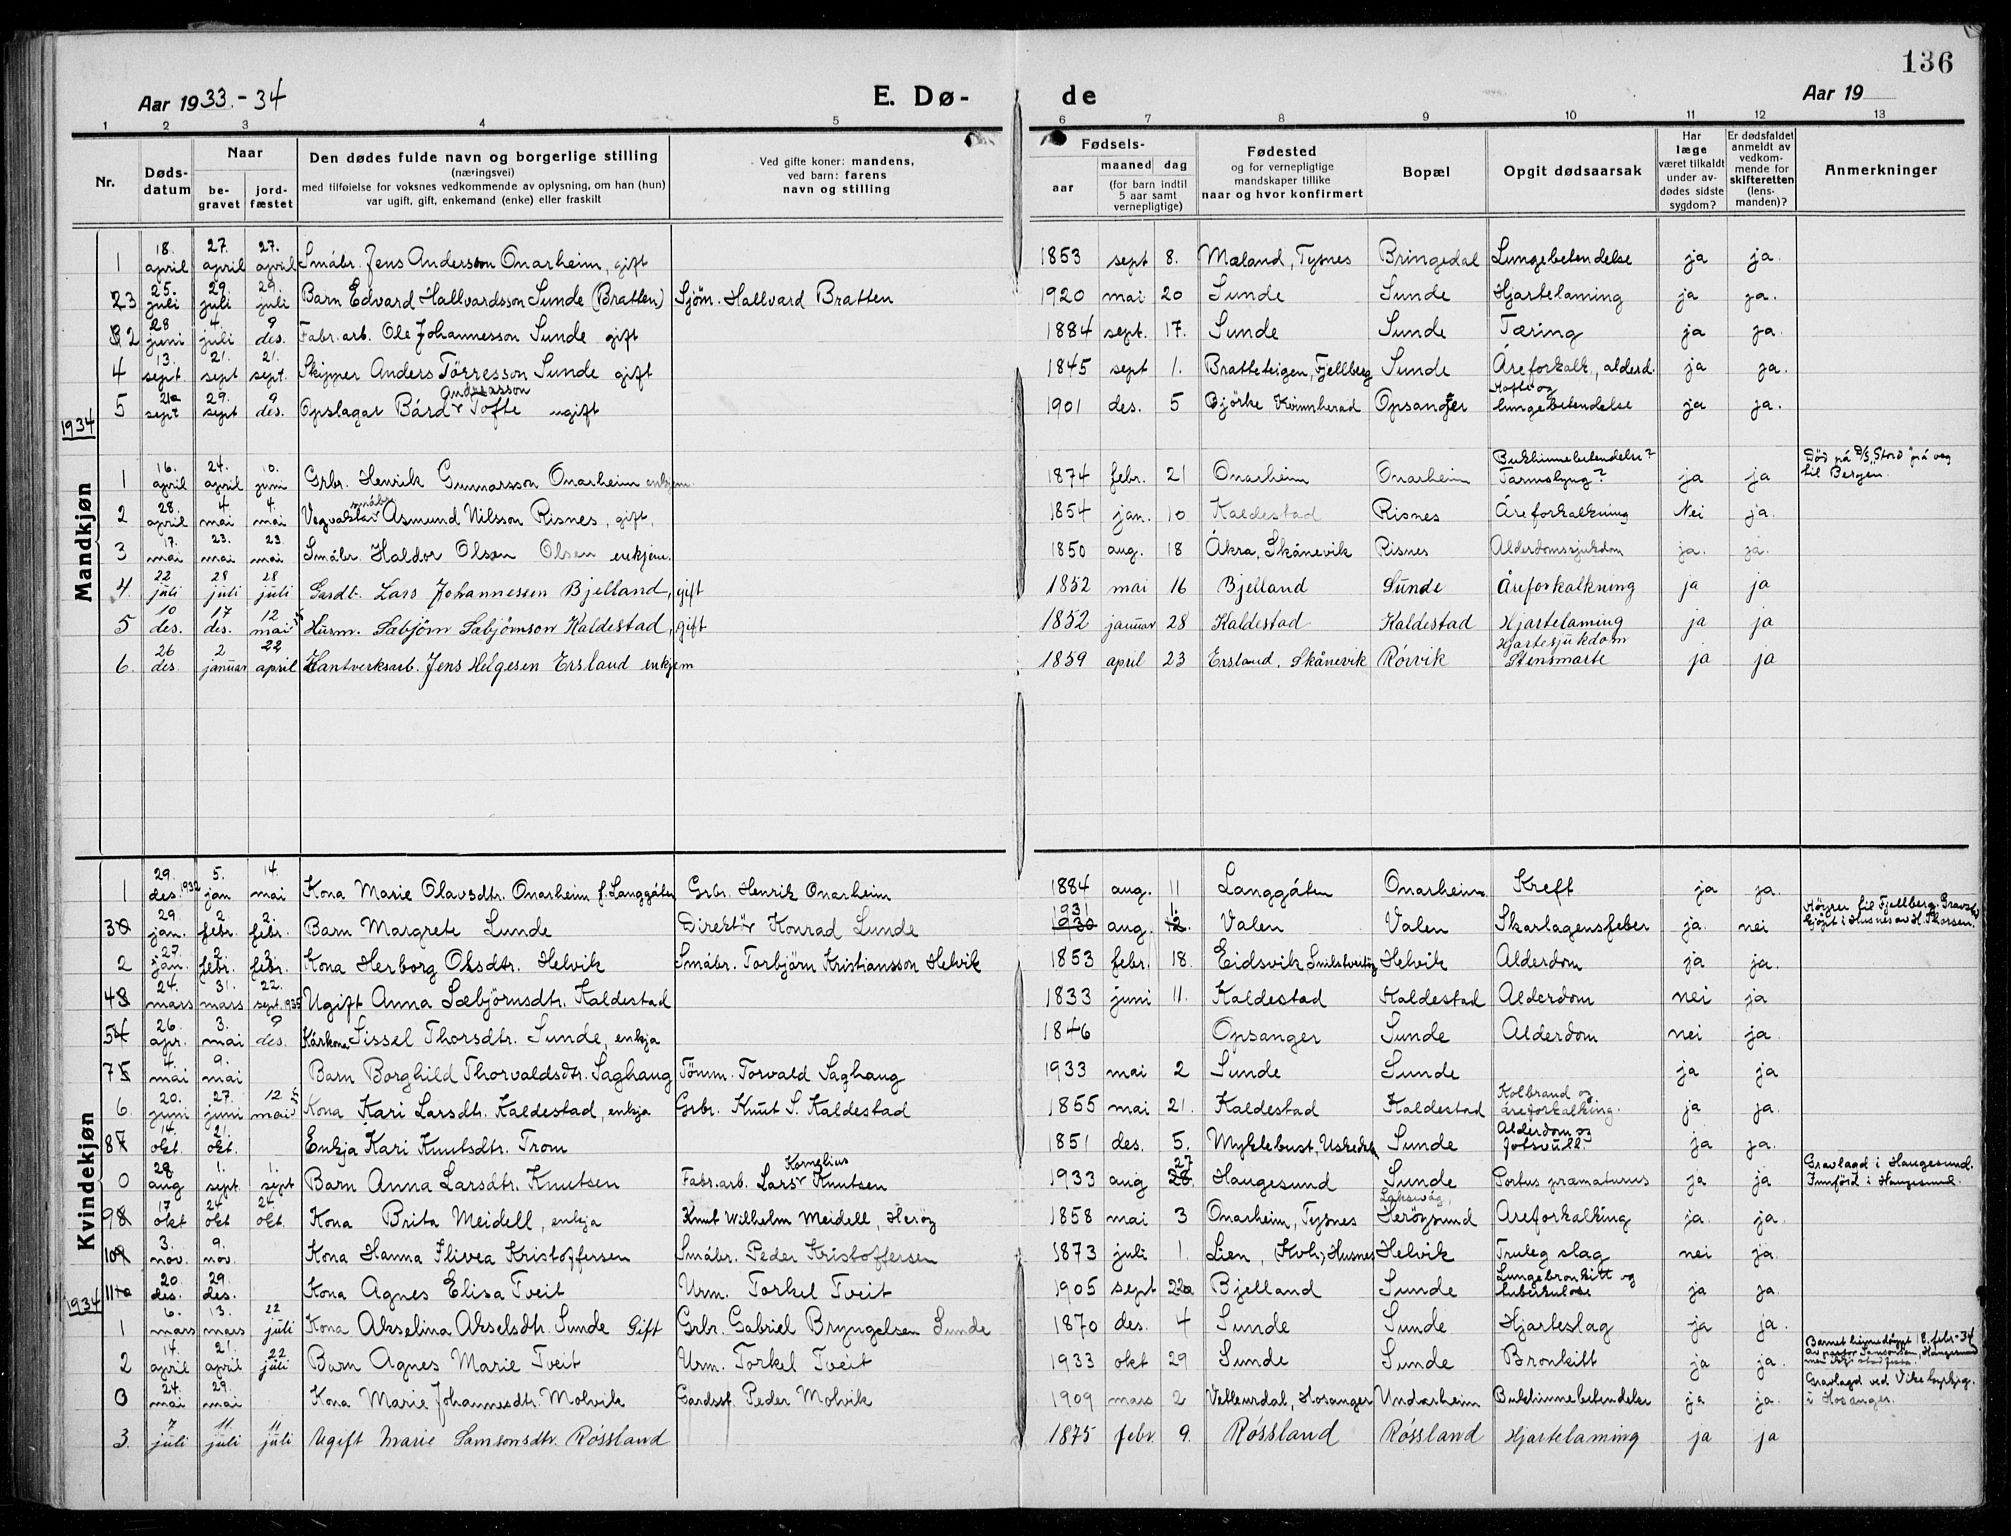 136
Aar 1933.-34
E. Dø-
de
Aar 19
1 2 3 4 5 6 7 8 9 10 11 12 13
Nr.
Døds-
datum
Naar
be-
gravet
jord-
fæstet
Den dødes fulde navn og borgerlige stilling
(næringsvei)
med tilføielse for voksnes vedkommende av oplysning, om han (hun)
var ugift, gift, enkemand (enke) eller fraskilt
Ved gifte koner: mandens,
ved barn: farens
navn og stilling
Fødsels-
aar
maaned dag
(for barn indtil
5 aar samt
vernepligtige)
Fødested
og for vernepligtige
mandskaper tillike
naar og hvor konfirmert
Bopæl
Opgit dødsaarsak
Har
læge
været tilkaldt
under av-
dødes sidste
sygdom?
Er dødsfaldet
anmeldt av
vedkom-
mende for
skifteretten
(lens-
manden)?
Anmerkninger
Mandkjøn
1 18. april 27. april 27. april Småbr. Jens Anderson Onarheim, gift 1853 sept 8. Mæland, Tysnes Bringedal Lungebetendelse ja ja.
3 25. juli 29. juli 29. juli Barn Edvard Hallvardsson Sunde (Bratten) Sjøm. Hallvard Bratten 1920 mai 20 Sunde Sunde Hjartelaming ja ja.
2 28 juni 4. juli 9 des. Fabr. arb. Ole Johannesson Sunde gift 1884 sept. 17. Sunde Sunde Tæring ja ja.
4 13. sept. 21. sept 21. sept. Skipper Anders Tørresson Sunde gift 1845 sept 1. Bratteteigen, Fjellberg Sunde Åreforkalk., alderd. ja ja.
5 sept 29. sept 9 des. Opslagar Bård Andreasson Tofte ugift 1901 des. 5 Bjørke Kvinnherad Opsanger Hofte og lungebetendelse ja ja.
1934
1 16. april 24. april 10. juni Grbr. Henrik Gunnarsson Onarheim enkjem. 1874 febr. 21 Onarheim Onarheim Bukhinnebetendelse? Tarmslyng? ja ja Død på D/S "Stord" på veg til Bergen.
2 28. april 4 mai 4. mai Vegvaktar småbr. Asmund Nilsson Risnes, gift, 1854 jan. 10 Kaldestad Risnes Åreforkalkning Nei ja.
3 17. mai 23. mai 23. mai Småbr. Haldor Olson Olsen enkjem. 1850 aug. 18 Åkra, Skånevik Risnes Alderdomssjukdom ja. ja.
4. 22 juli 28 juli 28 juli Gardb. Lars Johannessen Bjelland, gift 1852 mai 16 Bjelland Sunde Åreforkalkning ja ja
5 10 des. 17 des. 12 mai 35 Husm. Sæbjørn Sæbjørnson Kaldestad, gift 1852 januar 28 Kaldestad Kaldestad Hjartelaming ja ja
6. 26 des. 2 januar 22 april Hantverksarb. Jens Helgesen Ersland enkjem 1859 april 23 Ersland, Skånevik Rörvik Hjartesjukdom Stensmarte ja ja
Kvindekjøn
1 29. des. 1932 5. jan 14. mai Kona Marie Olavsdtr. Onarheim f. Langgåten Grbr. Henrik Onarheim 1884 aug. 11 Langgåten Onarheim Kreft ja ja.
3 29. jan. 2. febr. 2. febr. Barn Margrete Lunde Direktør Konrad Lunde 1931 1930 aug. 1. Valen Valen Skarlagensfeber ja. nei
2 27. jan. 2. febr. 2. febr. Kona Herborg Olsdtr. Helvik Småbr. Torbjörn Kristiansson Helvik 1853 febr. 18. Eidsvik Helvik Alderdom ja ja.
4 24. mars 31. mars 22. sept. 1935 Ugift Anna Sæbjörnsdtr. Kaldestad 1833 juni 11. Kaldestad Kaldestad Alderdom nei ja
5 26. apr. 3. mai 9 des. Kårkona Sissel Thorsdtr. Sunde, enkja 1846 Opsanger Sunde Alderdom nei ja.
7 4. mai 9. mai Barn Borghild Thorvaldsdtr. Saghaug Tömm. Torvald Saghaug 1933 mai 2 Sunde Sunde ja ja
6. 20. juni 27. juni 12 mai 35 Kona Kari Larsdtr. Kaldestad, enkja Grbr. Knut S. Kaldestad 1855 mai 21. Kaldestad Kaldestad Kolbrand og åreforkalking. ja ja.
8 14. okt. 21. okt. Enkja Kari Knutsdtr. Trom 1851 des. 5. Myklebust, Uskedal Sunde Alderdom og ja ja.
0 28 aug 1. sept 1. sept Barn Anna Larsdtr. Knutsen Fabr. arb. Lars Kornelius Knutsen 1933 aug 27 28. Haugesund Sunde Partus præmaturus ja ja Gravlagd i Haugesund. Innförd i Haugesund.
9 17 okt 24 okt 24 okt. Kona Brita Meidell, enkja Knut Wilhelm Meidell, Herøy 1858 mai 3 Onarheim, Tysnes Herøysund Åreforkalking ja. ja.
10 3. nov. 9. nov. Kona Hanna Ilivea Kristoffersen Småbr. Peder Kristoffersen 1873 juli 1. Lien, (Kvh.), Husnes Helvik Truleg slag nei ja.
11 20 des. 29 des. Kona Agnes Elisa Tveit Urm. Torkel Tveit 1905 sept 22 Bjelland Sunde Lungebronkitt og tuberkulose ja ja.
1934
1 6. mars 13. mars 22 juli Kona Akselina Akselsdtr. Sunde Gift Grbr. Gabriel Bryngelsen Sunde 1870 des. 4 Sunde Sunde Hjarteslag ja ja.
2 14. april 21. april 22 juli Barn Agnes Marie Tveit Urm. Torkel Tveit 1933 okt 29 Sunde Sunde Bronkitt ja ja. Barnet heimedøypt 18. febr-34 av pastor Samonsen, Haugesund
0 24. mai 29. mai Kona Marie Johannesdtr. Molvik Gardsst. Peder Molvik 1909 mars 2 Vetleurdal, Hosanger Undarheim Bukhinnebetendelse ja ja. Gravlagd ved i Hosanger.
3. 7 juli 11 juli 11 juli Ugift Marie Samsonsdtr. Røssland 1875 febr. 9. Røssland Røssland Hjartelaming ja ja